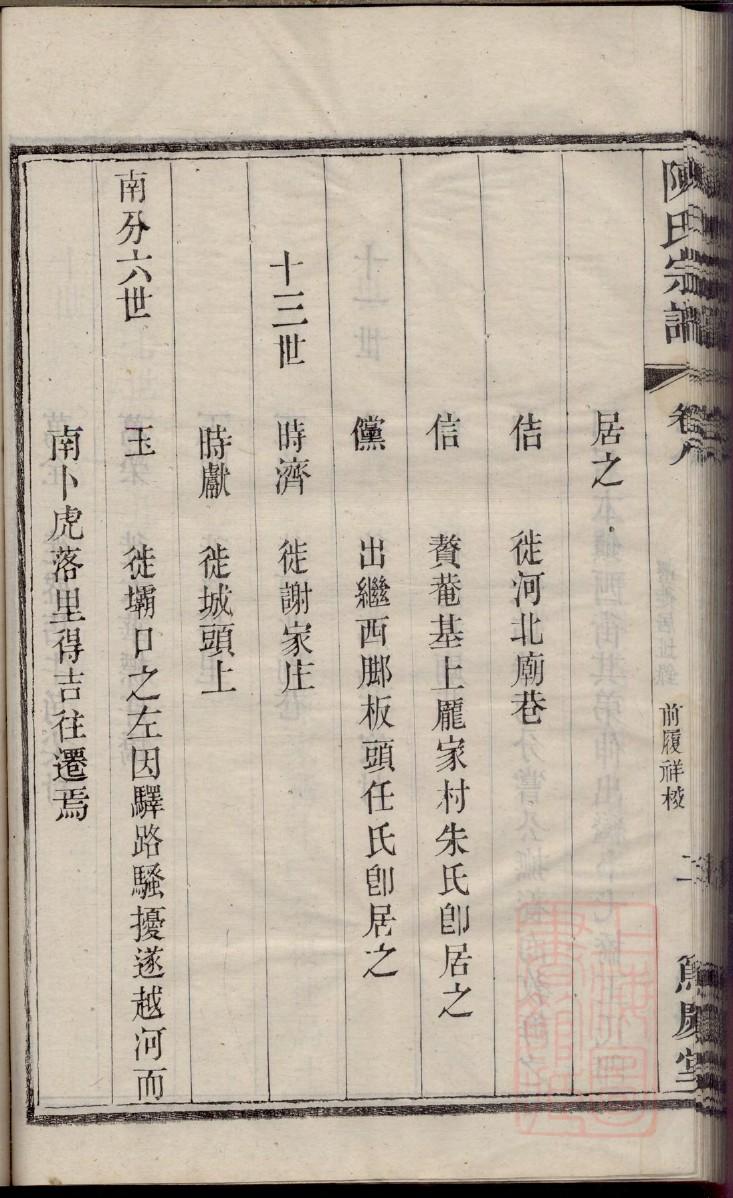 陳氏宗譜
卷八
前履祥棱
二
居之
佶 徙河北廟巷
信 贅菴基上龎家村朱氏卽居之
儻 出繼西郞板頭任氏卽居之
十三世 時濟 徙謝家庄
時獻 徙城頭上
南分六世 玉 徙壩口之左因驛路騷擾遂越河而
南卜虎落里得吉往遷焉